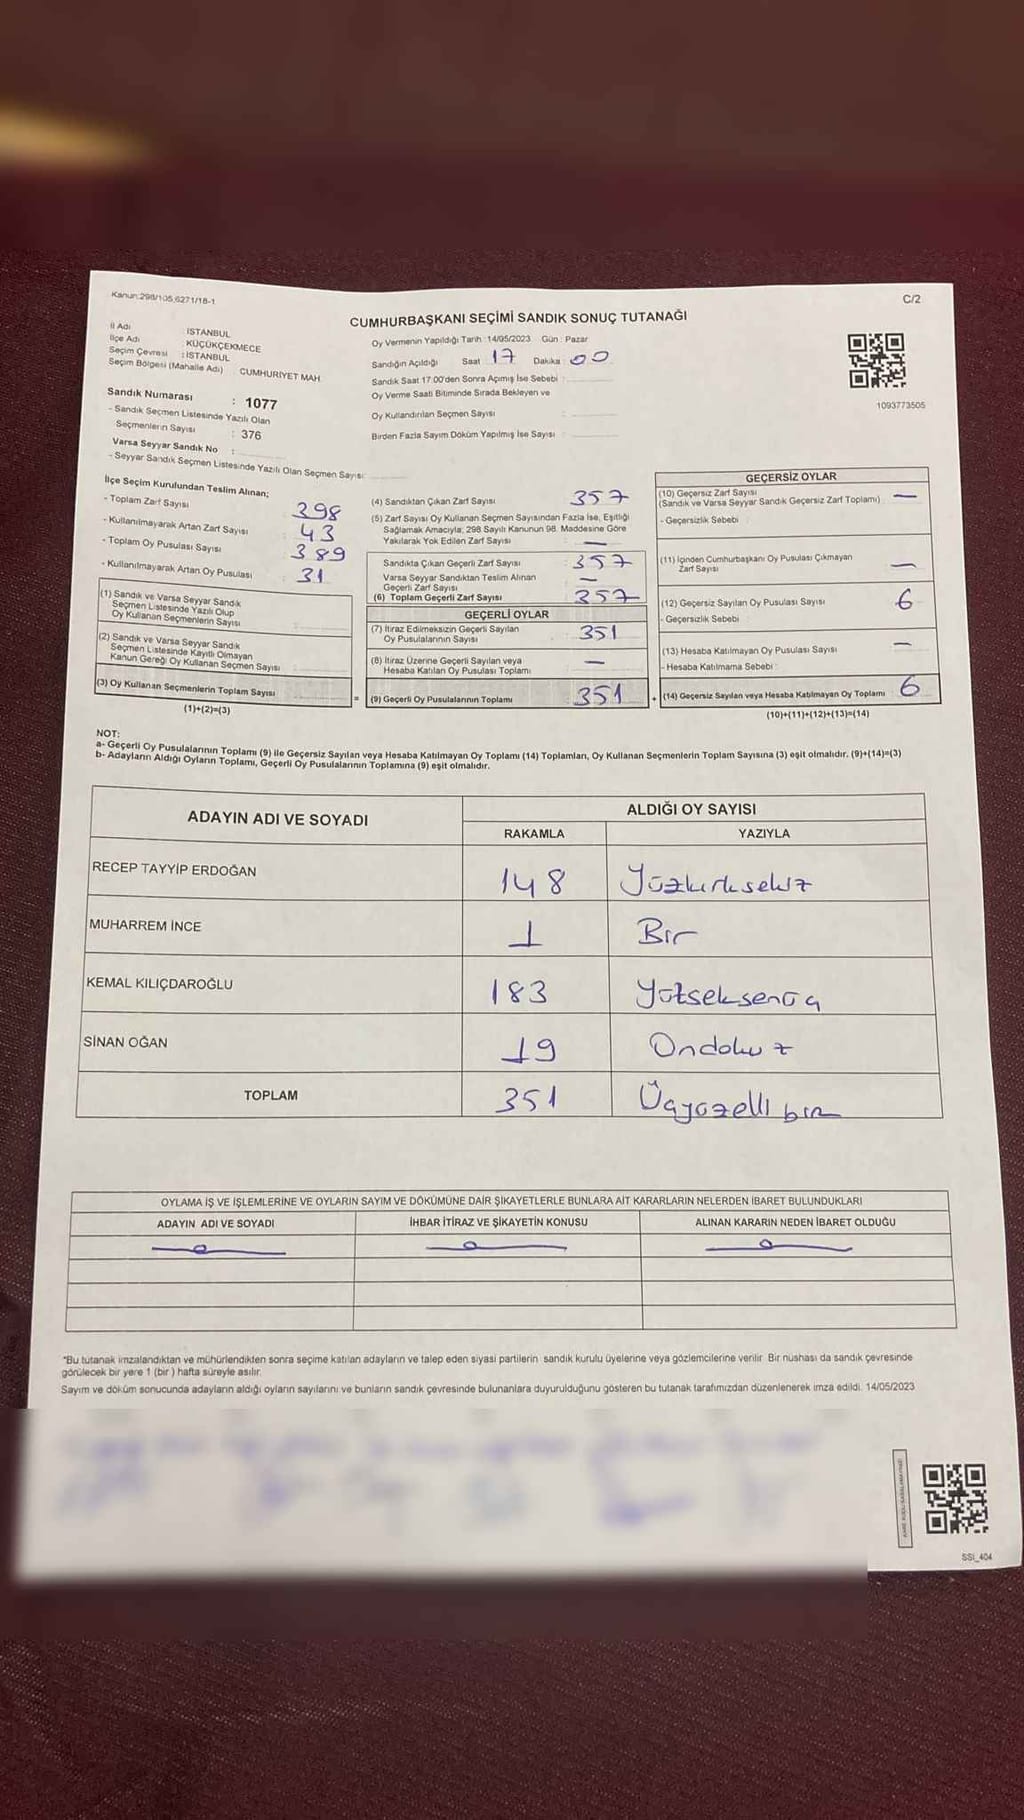 Kanun:298/105,6271/18-1
C/2
CUMHURBAŞKANI SEÇİMİ SANDIK SONUÇ TUTANAĞI
İl Adı : İSTANBUL
İlçe Adı : KÜÇÜKÇEKMECE
Seçim Çevresi : İSTANBUL
Seçim Bölgesi (Mahalle Adı) CUMHURİYET MAH
Sandık Numarası : 1077
- Sandık Seçmen Listesinde Yazılı Olan
Seçmenlerin Sayısı : 376
Varsa Seyyar Sandık No :
- Seyyar Sandık Seçmen Listesinde Yazılı Olan Seçmen Sayısı:
Oy Vermenin Yapıldığı Tarih :14/05/2023 Gün : Pazar
Sandığın Açıldığı Saat : 17 Dakika : 00
Sandık Saat 17:00'den Sonra Açımış İse Sebebi :
Oy Verme Saati Bitiminde Sırada Bekleyen ve
Oy Kullandırılan Seçmen Sayısı :
Birden Fazla Sayım Döküm Yapılmış İse Sayısı :
1093773505
İlçe Seçim Kurulundan Teslim Alınan;
- Toplam Zarf Sayısı : 398
- Kullanılmayarak Artan Zarf Sayısı : 43
- Toplam Oy Pusulası Sayısı : 389
- Kullanılmayarak Artan Oy Pusulası : 31
(1) Sandık ve Varsa Seyyar Sandık
Seçmen Listesinde Yazılı Olup
Oy Kullanan Seçmenlerin Sayısı :
(2) Sandık ve Varsa Seyyar Sandık
Seçmen Listesinde Kayıtlı Olmayan
Kanun Gereği Oy Kullanan Seçmen Sayısı :
(3) Oy Kullanan Seçmenlerin Toplam Sayısı :
(1)+(2)=(3)
(4) Sandıktan Çıkan Zarf Sayısı : 357
(5) Zarf Sayısı Oy Kullanan Seçmen Sayısından Fazla İse, Eşitliği
Sağlamak Amacıyla; 298 Sayılı Kanunun 98. Maddesine Göre
Yakılarak Yok Edilen Zarf Sayısı : —
Sandıkta Çıkan Geçerli Zarf Sayısı : 357
Varsa Seyyar Sandıktan Teslim Alınan
Geçerli Zarf Sayısı : —
(6) Toplam Geçerli Zarf Sayısı : 357
GEÇERLİ OYLAR
(7) İtiraz Edilmeksizin Geçerli Sayılan
Oy Pusulalarının Sayısı : 351
(8) İtiraz Üzerine Geçerli Sayılan veya
Hesaba Katılan Oy Pusulası Toplamı : —
= (9) Geçerli Oy Pusulalarının Toplamı : 351
GEÇERSİZ OYLAR
(10) Geçersiz Zarf Sayısı
(Sandık ve Varsa Seyyar Sandık Geçersiz Zarf Toplamı) : —
- Geçersizlik Sebebi :
(11) İçinden Cumhurbaşkanı Oy Pusulası Çıkmayan
Zarf Sayısı : —
(12) Geçersiz Sayılan Oy Pusulası Sayısı : 6
- Geçersizlik Sebebi :
(13) Hesaba Katılmayan Oy Pusulası Sayısı : —
- Hesaba Katılmama Sebebi :
+ (14) Geçersiz Sayılan veya Hesaba Katılmayan Oy Toplamı : 6
(10)+(11)+(12)+(13)=(14)
NOT:
a- Geçerli Oy Pusulalarının Toplamı (9) ile Geçersiz Sayılan veya Hesaba Katılmayan Oy Toplamı (14) Toplamları, Oy Kullanan Seçmenlerin Toplam Sayısına (3) eşit olmalıdır. (9)+(14)=(3)
b- Adayların Aldığı Oyların Toplamı, Geçerli Oy Pusulalarının Toplamına (9) eşit olmalıdır.
ADAYIN ADI VE SOYADI
ALDIĞI OY SAYISI
RAKAMLA YAZIYLA
RECEP TAYYİP ERDOĞAN 148 Yüzkırksekiz
MUHARREM İNCE 1 Bir
KEMAL KILIÇDAROĞLU 183 Yüzseksenüç
SİNAN OĞAN 19 Ondokuz
TOPLAM 351 Üçyüzelli bir
OYLAMA İŞ VE İŞLEMLERİNE VE OYLARIN SAYIM VE DÖKÜMÜNE DAİR ŞİKAYETLERLE BUNLARA AİT KARARLARIN NELERDEN İBARET BULUNDUKLARI
ADAYIN ADI VE SOYADI İHBAR İTİRAZ VE ŞİKAYETİN KONUSU ALINAN KARARIN NEDEN İBARET OLDUĞU
*Bu tutanak imzalandıktan ve mühürlendikten sonra seçime katılan adayların ve talep eden siyasi partilerin sandık kurulu üyelerine veya gözlemcilerine verilir. Bir nüshası da sandık çevresinde
görülecek bir yere 1 (bir) hafta süreyle asılır.
Sayım ve döküm sonucunda adayların aldığı oyların sayılarını ve bunların sandık çevresinde bulunanlara duyurulduğunu gösteren bu tutanak tarafımızdan düzenlenerek imza edildi. 14/05/2023
SSI_404